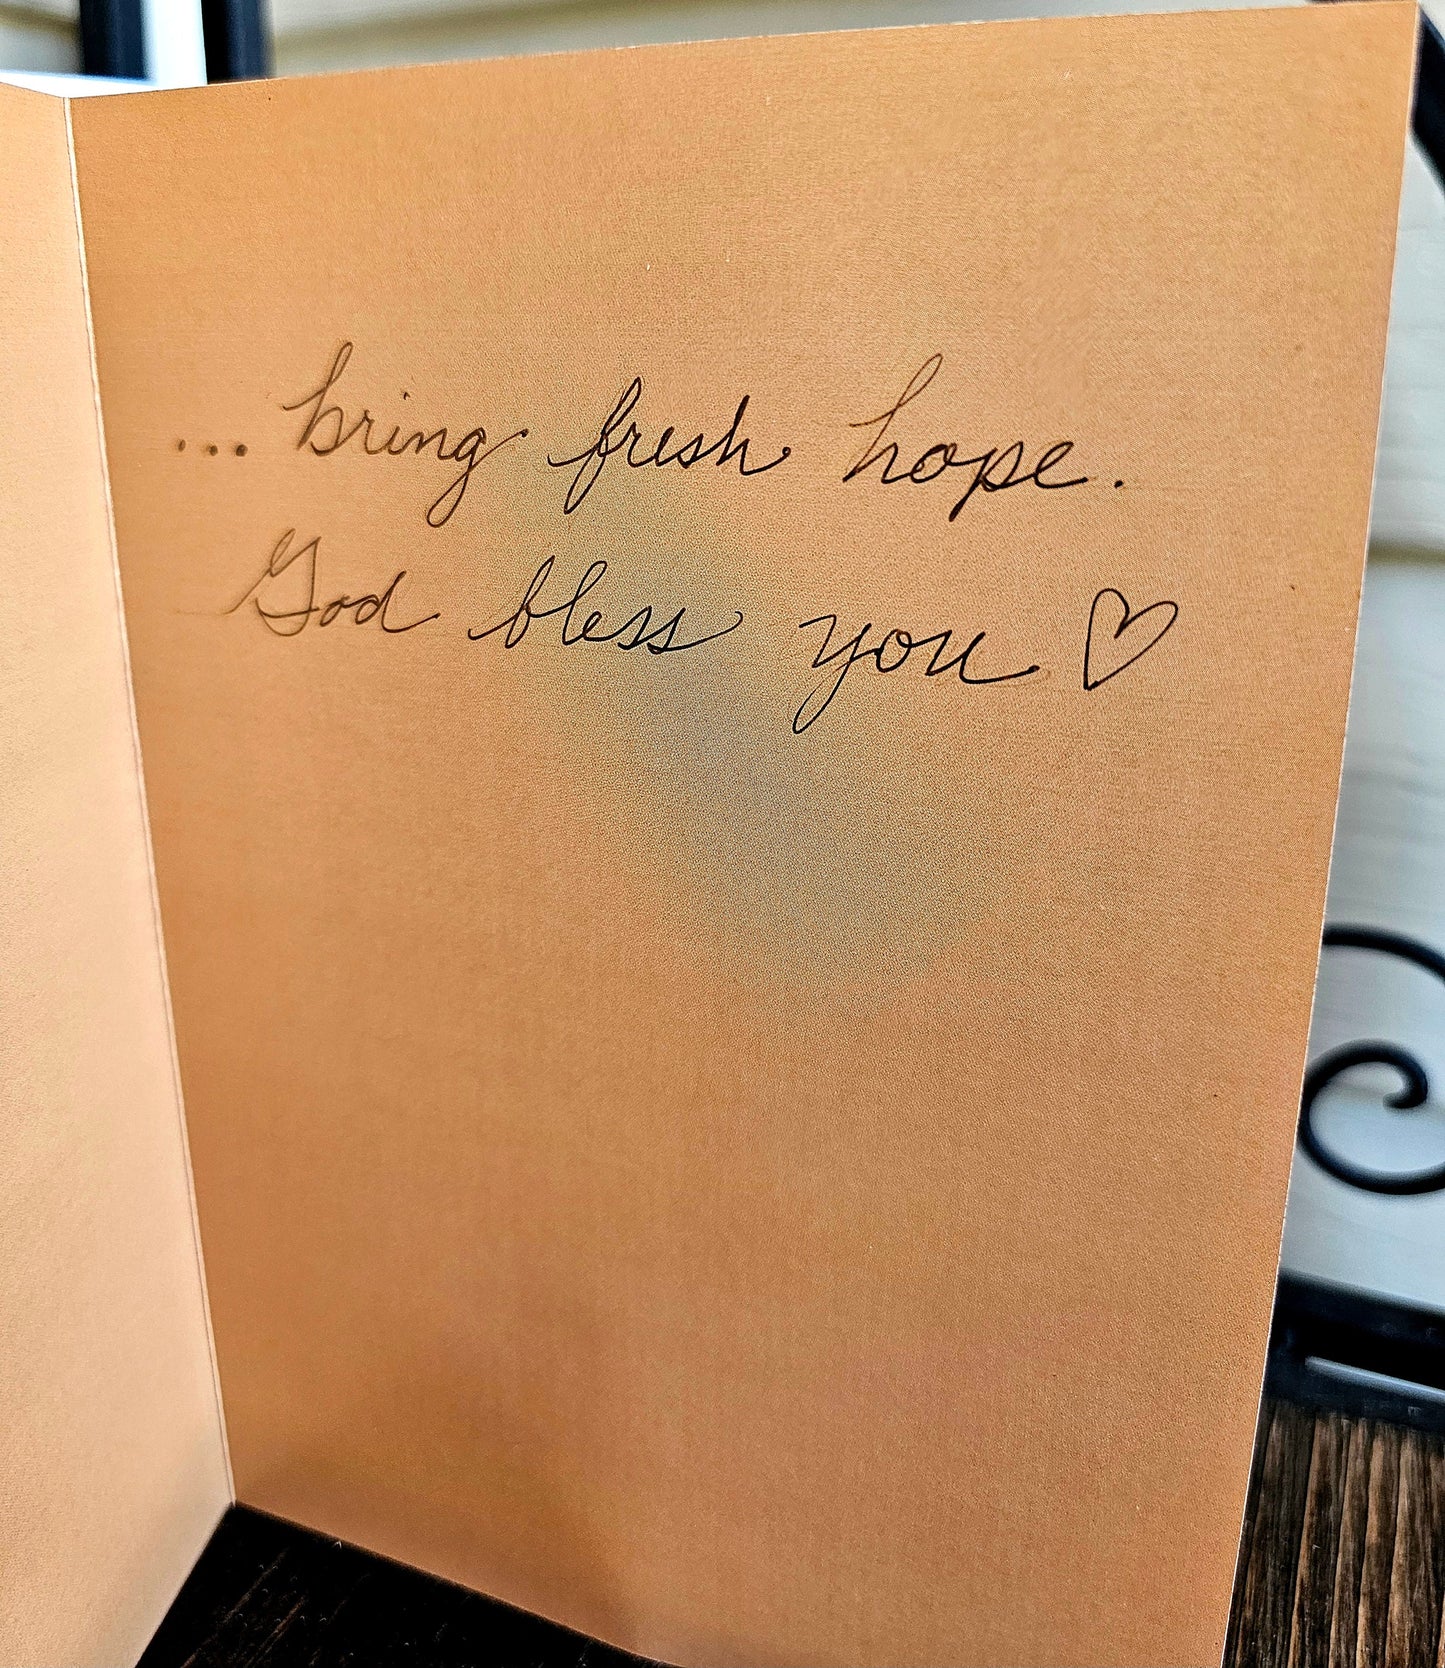 ... bring fresh hope.
God bless you ♡